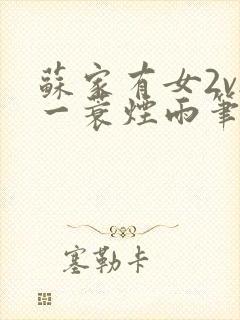 蘇家有女2v
一蓑煙雨筆
塞勒卡